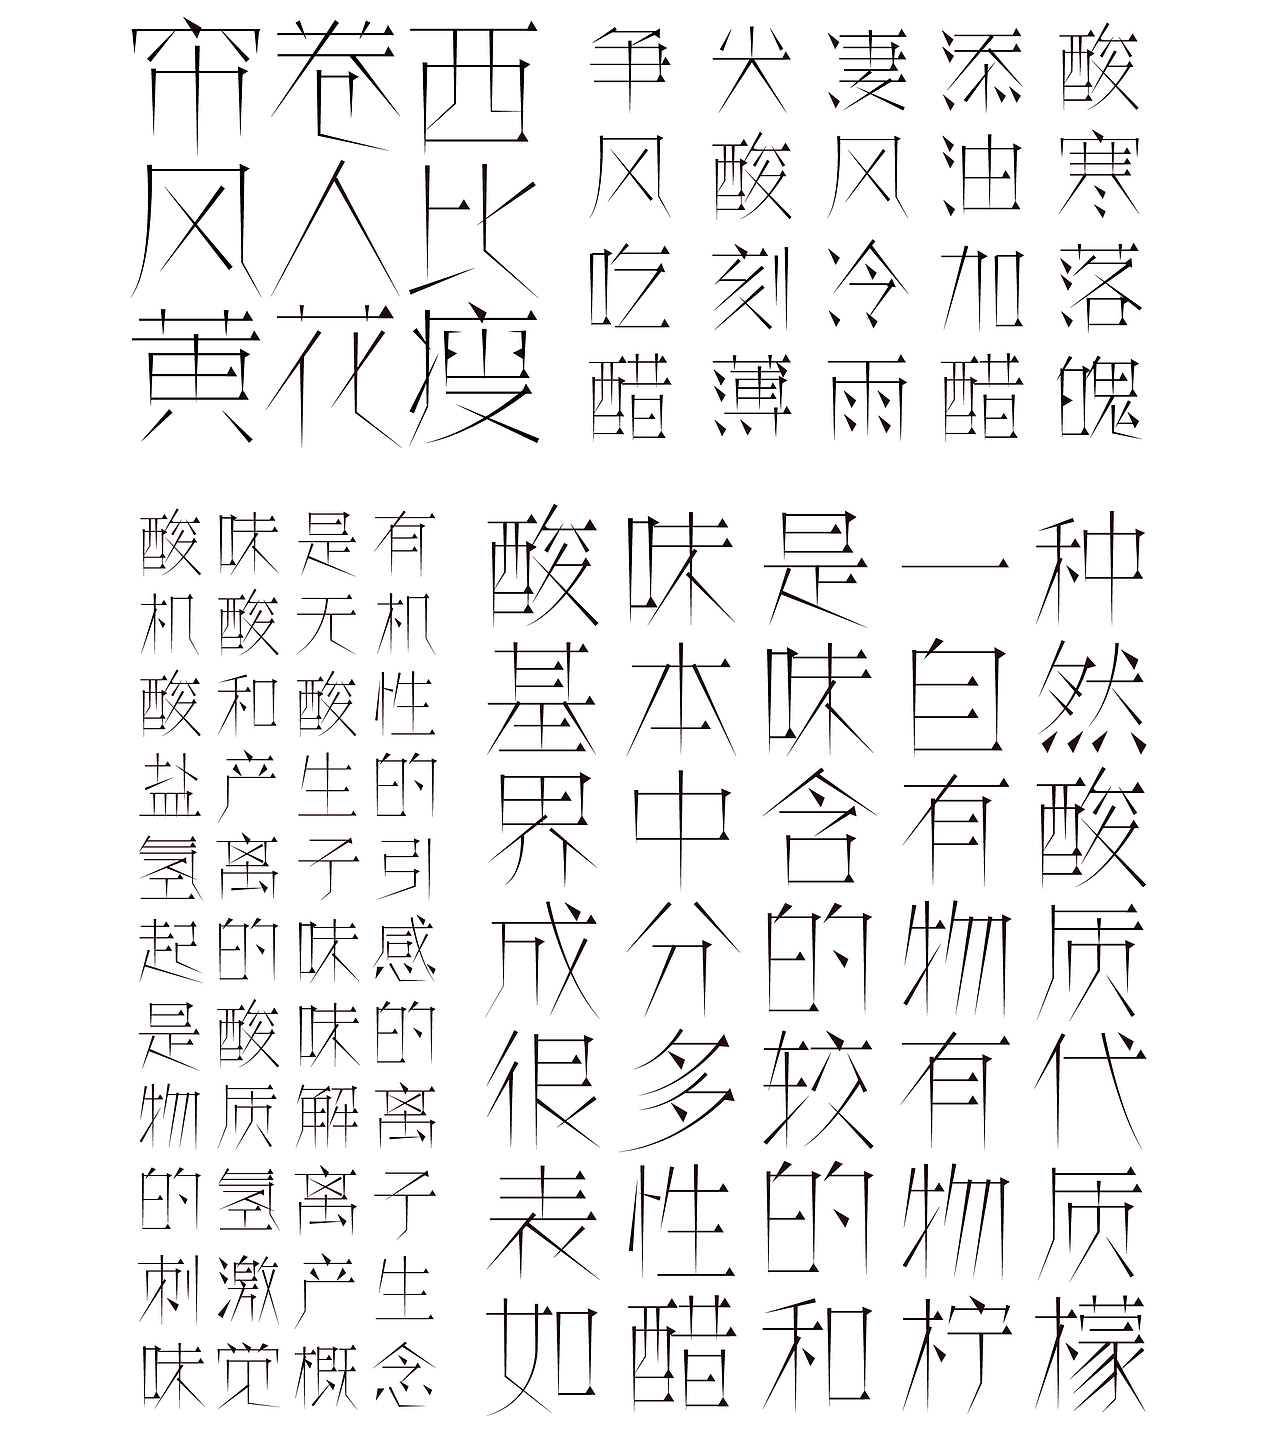 帘卷西
风人比
黄花瘦
争风吃醋
尖酸刻薄
凄风冷雨
添油加醋
酸寒落魄
酸味是有
机酸无机
酸和酸性
盐产生的
氢离子引
起的味感
是酸味的
物质解离
的氢离子
刺激产生
味觉概念
酸味是一种
基本味自然
界中含有酸
成分的物质
很多较有代
表性的物质
如醋和柠檬